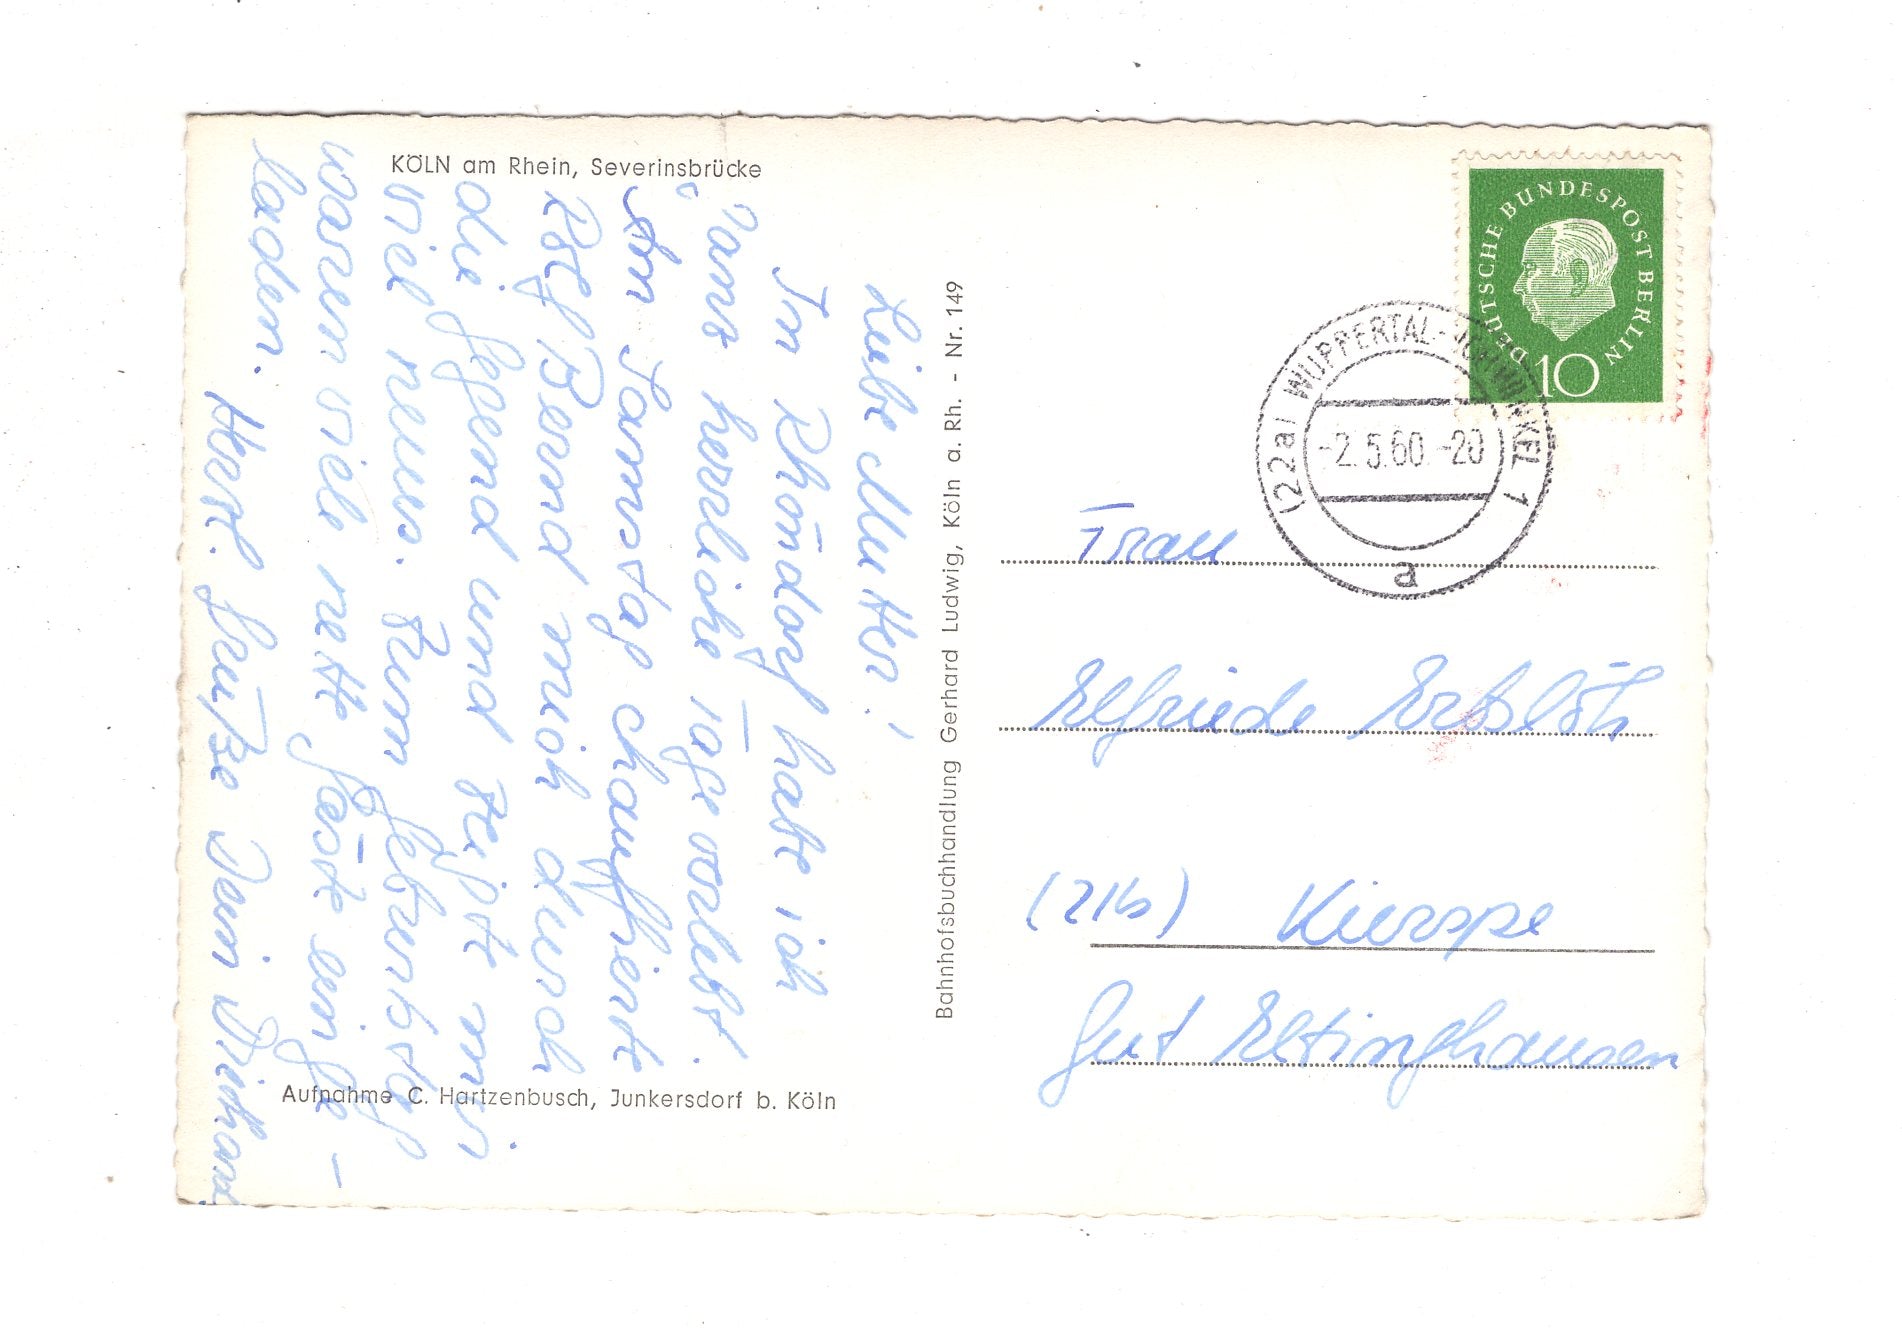 KÖLN am Rhein, Severinsbrücke
Liebe Mutter!
In Rhöndorf habe ich
ganz herrliche Tage verlebt.
Am Samstag chauffierte
Rolf Bernd mich durch
die Gegend und zeigte mir
viel neues. Zum Geburtstag
waren viele nette Gäste einge-
laden.
Herzl. Grüße Dein
Aufnahme C. Hartzenbusch, Junkersdorf b. Köln
Bahnhofsbuchhandlung Gerhard Ludwig, Köln a. Rh. - Nr. 149
DEUTSCHE BUNDESPOST BERLIN
10
(22a) WUPPERTAL-VOHWINKEL 1
-2.5.60.-20
a
Frau
Elfriede Erbslöh
(21b) Kierspe
Gut Eltinghausen